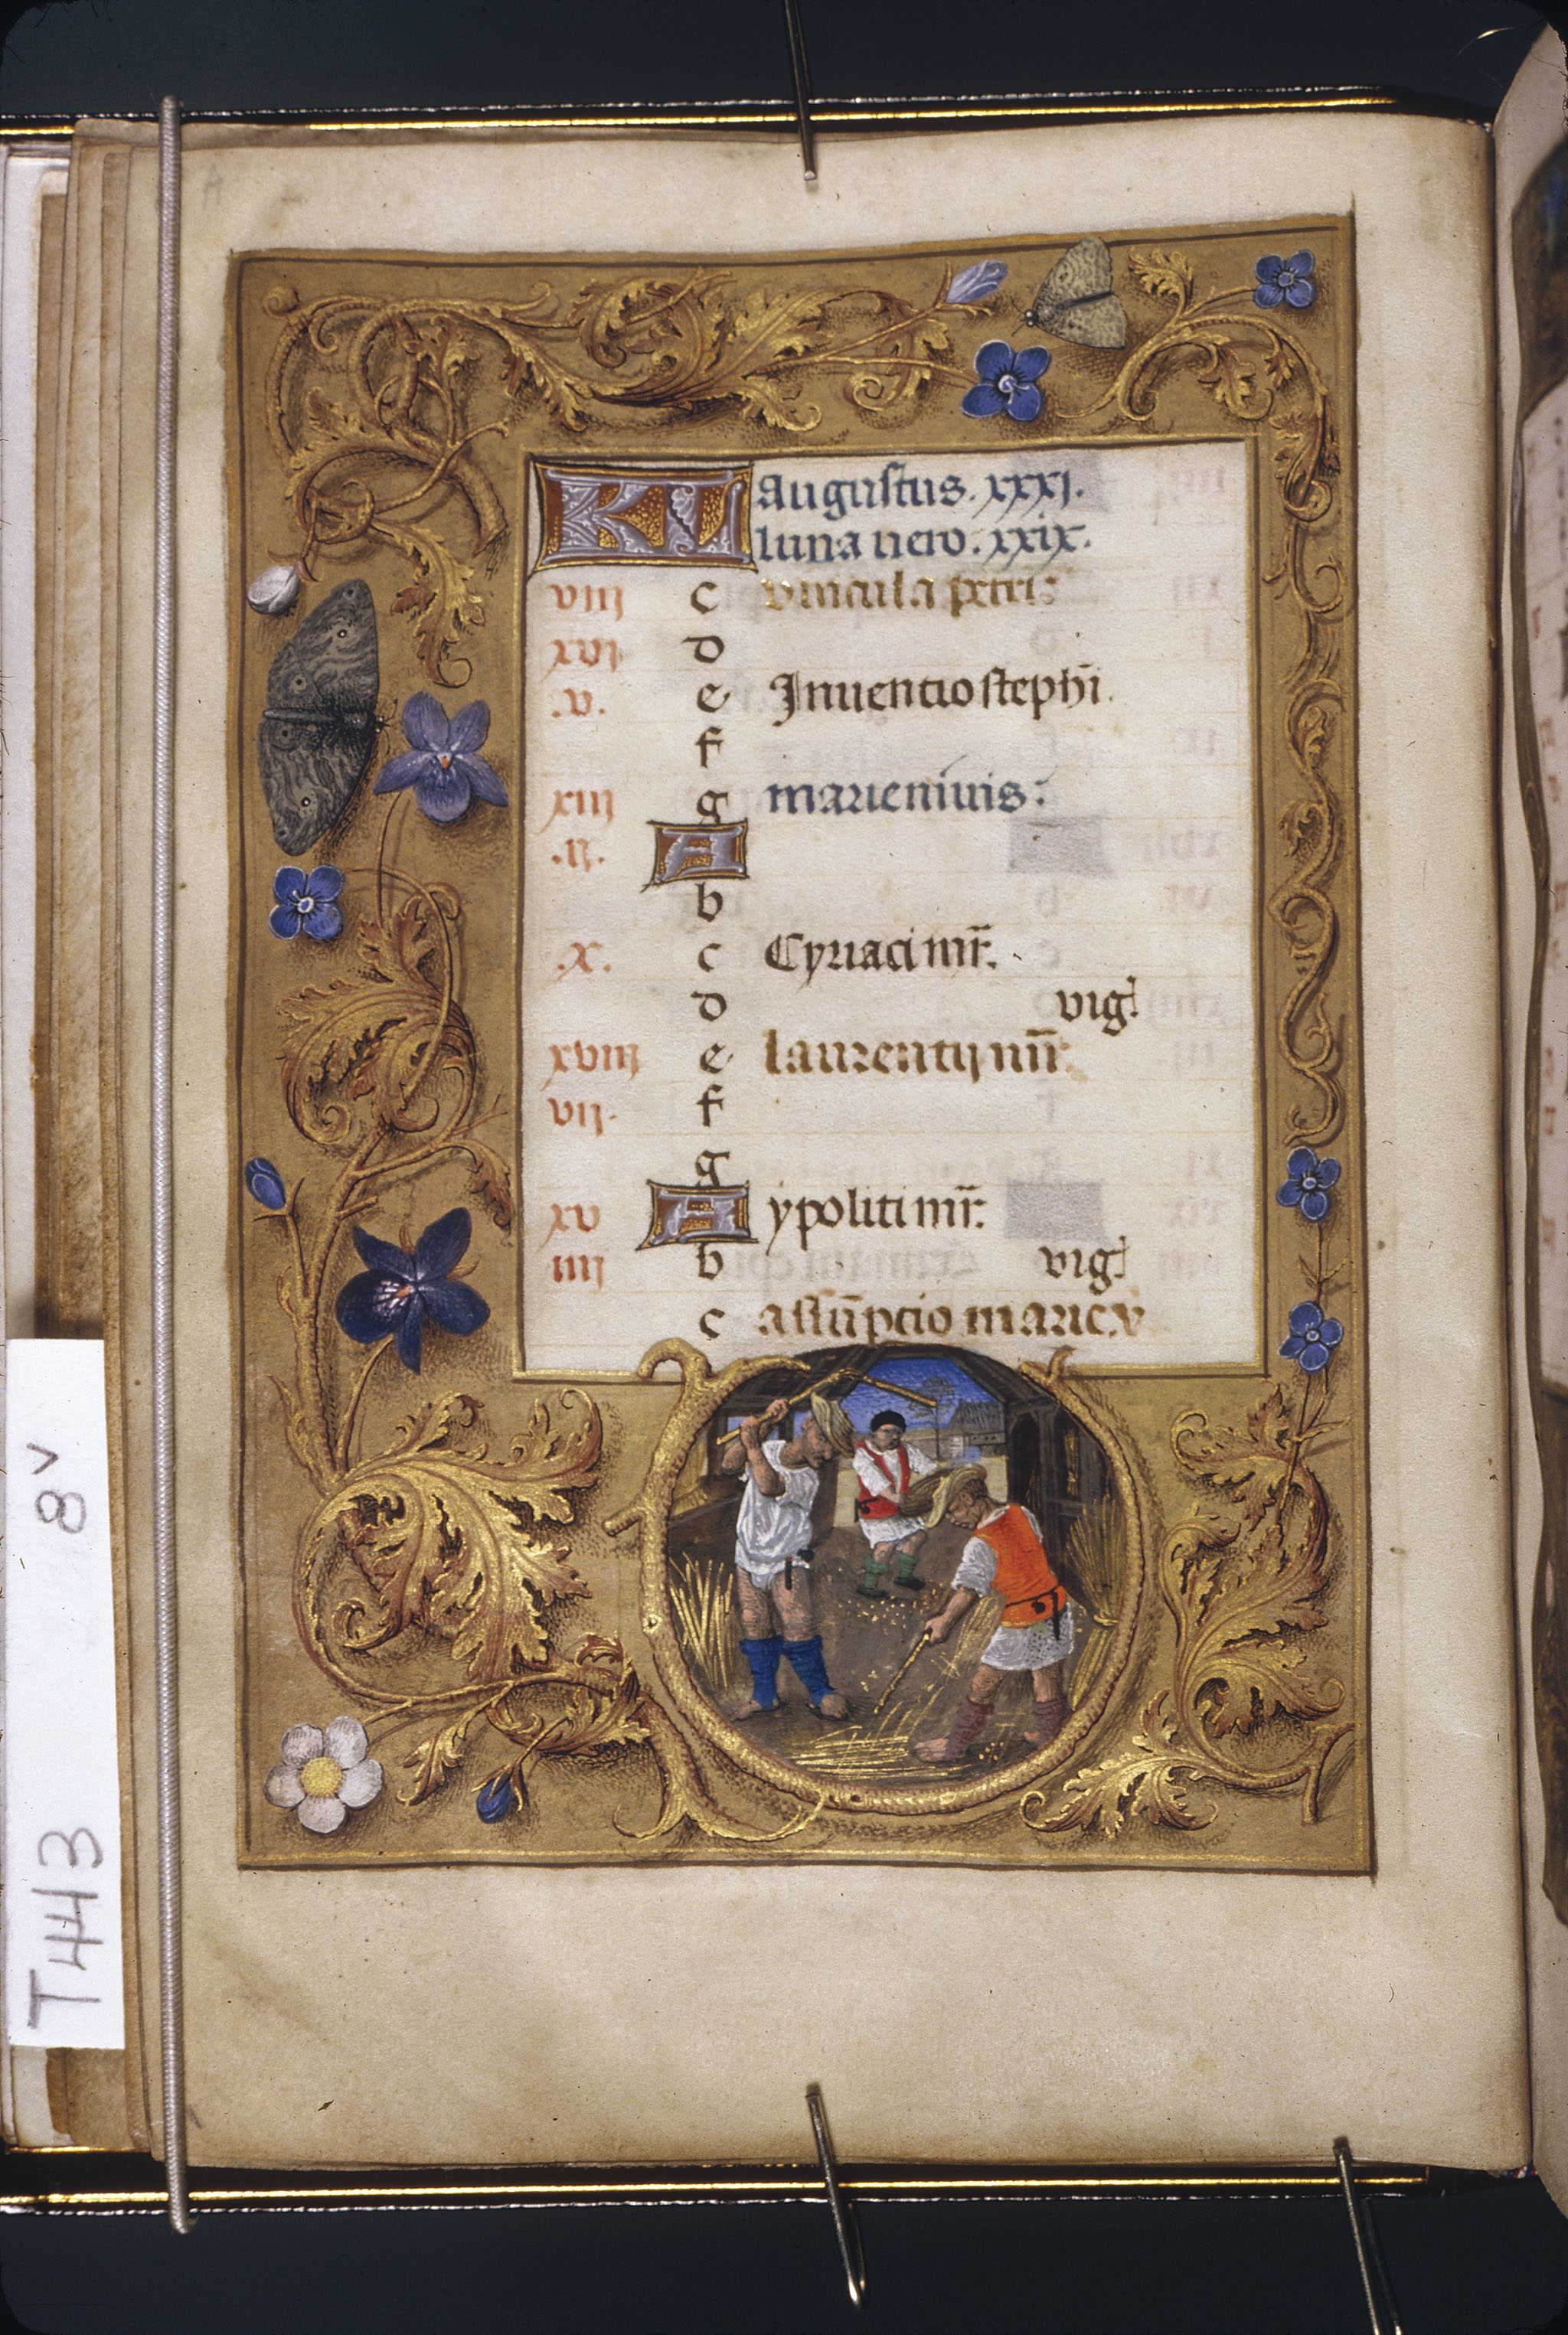 KL Augustus. xxxj.
luna vero. xxix.
viij c vincula petri:
xvj d
.v. e Inuentio steph̄i.
f
xiij g marie niuis:
.ij. A
b
.x. c Cyriaci mr̄.
d vig̃
xviij e laurentij mr̄.
vij. f
g
xv A ypoliti mr̄.
iiij b vig̃
c assūpcio marie v
8v
TH43